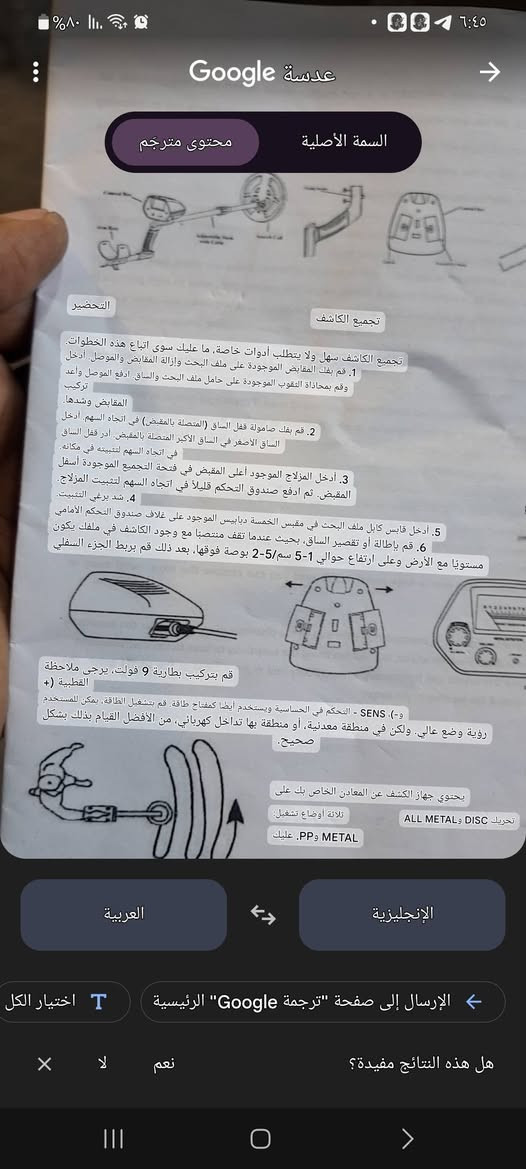 ٦:٤٥
%٨٠
عدسة Google
السمة الأصلية
محتوى مترجَم
التحضير
تجميع الكاشف
تجميع الكاشف سهل ولا يتطلب أدوات خاصة، ما عليك سوى اتباع هذه الخطوات.
1. قم بفك المقابض الموجودة على ملف البحث وإزالة المقابض والموصل. أدخل
وقم بمحاذاة الثقوب الموجودة على حامل ملف البحث والساق. ادفع الموصل وأعد
تركيب
المقابض وشدها.
2. قم بفك صامولة قفل الساق (المتصلة بالمقبض) في اتجاه السهم. أدخل
الساق الأصغر في الساق الأكبر المتصلة بالمقبض. أدر قفل الساق
في اتجاه السهم لتثبيته في مكانه.
3. أدخل المزلاج الموجود أعلى المقبض في فتحة التجميع الموجودة أسفل
المقبض. ثم ادفع صندوق التحكم قليلاً في اتجاه السهم لتثبيت المزلاج.
4. شد برغي التثبيت.
5. أدخل قابس كابل ملف البحث في مقبس الخمسة دبابيس الموجود على غلاف صندوق التحكم الأمامي
6. قم بإطالة أو تقصير الساق، بحيث عندما تقف منتصبًا مع وجود الكاشف في ملفك يكون
مستويًا مع الأرض وعلى ارتفاع حوالي 1-5 سم/5-2 بوصة فوقها، بعد ذلك قم بربط الجزء السفلي
قم بتركيب بطارية 9 فولت، يرجى ملاحظة
القطبية (+
و-) SENS - التحكم في الحساسية ويستخدم أيضًا كمفتاح طاقة. قم بتشغيل الطاقة، يمكن للمستخدم
رؤية وضع عالي. ولكن في منطقة معدنية، أو منطقة بها تداخل كهربائي، من الأفضل القيام بذلك بشكل
صحيح.
يحتوي جهاز الكشف عن المعادن الخاص بك على
ثلاثة أوضاع تشغيل:
تحريك DISC وALL METAL
METAL وPP. عليك
الإنجليزية
العربية
الإرسال إلى صفحة "ترجمة Google" الرئيسية
اختيار الكل
هل هذه النتائج مفيدة؟
نعم
لا